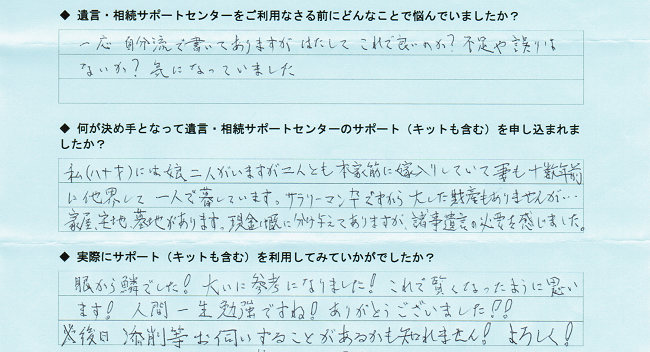 ◆ 遺言・相続サポートセンターをご利用なさる前にどんなことで悩んでいましたか？
一応 自分流で書いてありますが はたして これで良いのか？不足や誤りは
ないか？ 気になっていました
◆ 何が決め手となって遺言・相続サポートセンターのサポート（キットも含む）を申し込まれま
したか？
私(八十才)には娘二人がいますが二人とも本家筋に嫁入りしていて妻も十数年前
に他界して一人で暮しています。サラリーマン卒ですから大した財産もありませんが…
家屋、宅地、墓地があります。現金は既に分け与えてありますが、諸事遺言の必要を感じました。
◆ 実際にサポート（キットも含む）を利用してみていかがでしたか？
眼から鱗でした！ 大いに参考になりました！ これで賢くなったように思い
ます！ 人間一生勉強ですね！ ありがとうございました!!
※後日 添削等お伺いすることがあるかも知れません！ よろしく！